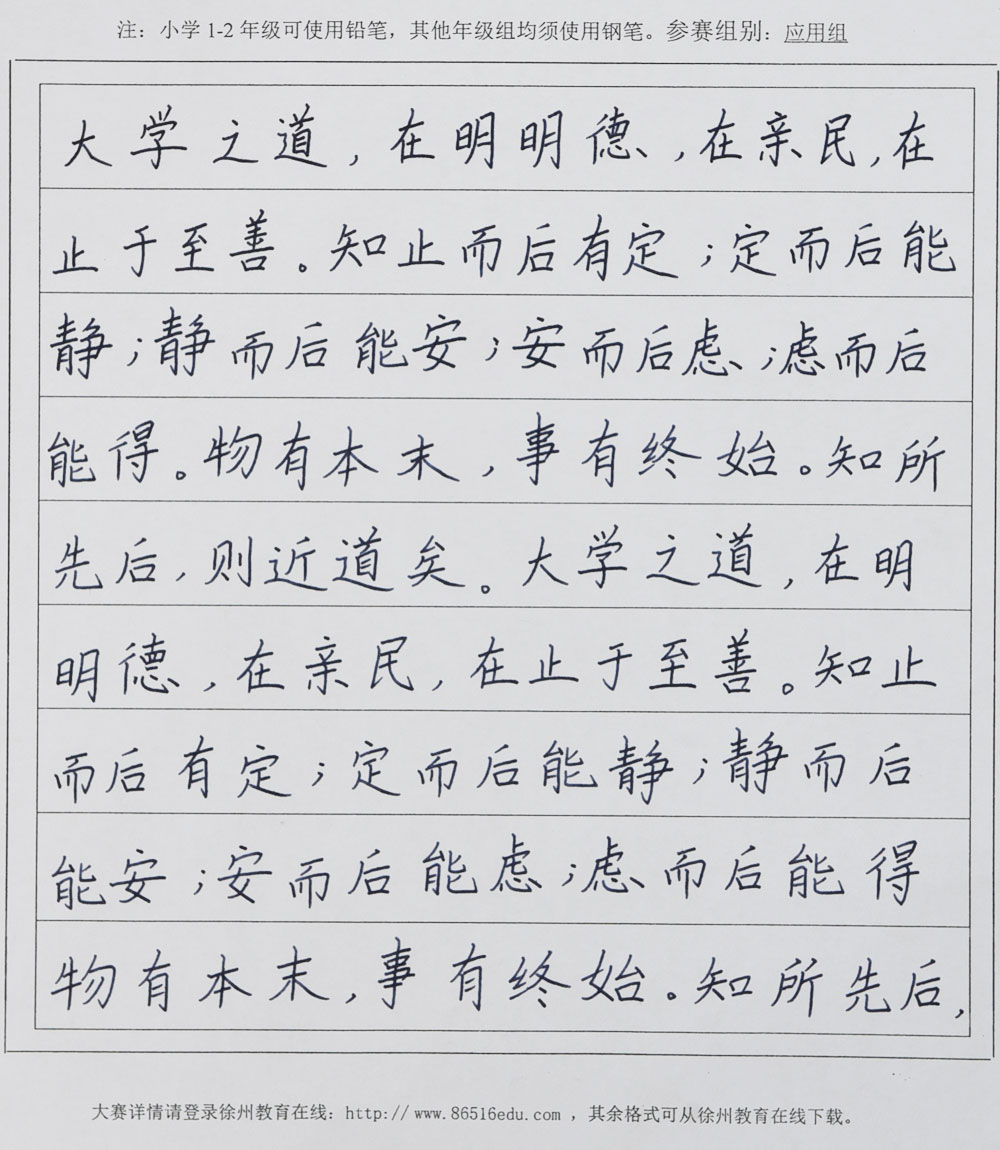 注：小学1-2年级可使用铅笔，其他年级组均须使用钢笔。参赛组别：应用组
大学之道，在明明德，在亲民，在
止于至善。知止而后有定；定而后能
静；静而后能安；安而后虑；虑而后
能得。物有本末，事有终始。知所
先后，则近道矣。大学之道，在明
明德，在亲民，在止于至善。知止
而后有定；定而后能静；静而后
能安；安而后能虑；虑而后能得
物有本末，事有终始。知所先后，
大赛详情请登录徐州教育在线：http://www.86516edu.com，其余格式可从徐州教育在线下载。